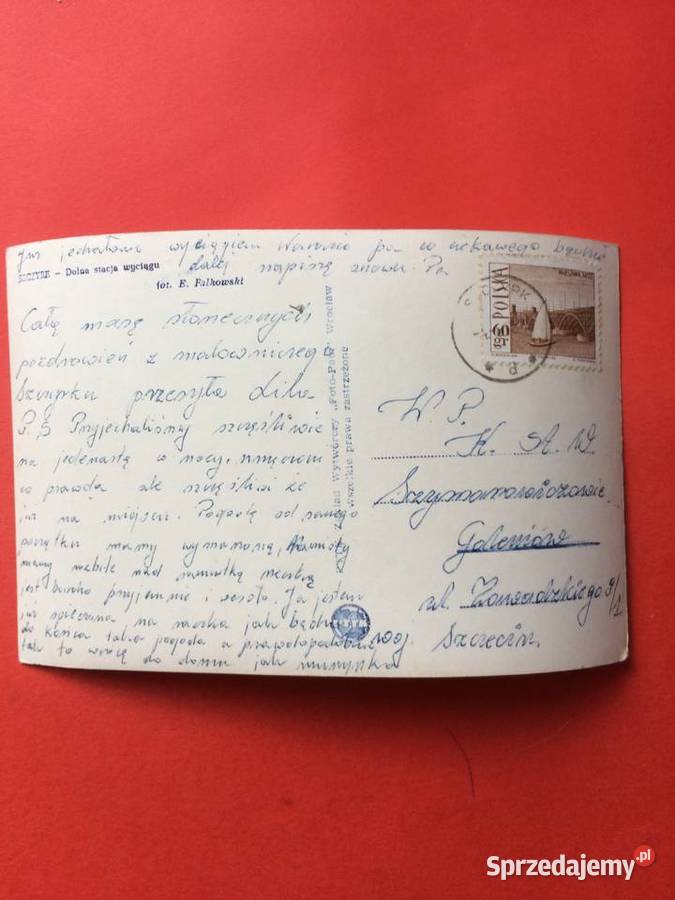 Już jechałam wyciągiem Wrażenie po co ciekawego będzie
dalej napiszę znowu. Pa
SZCZYRK – Dolna stacja wyciągu
fot. E. Falkowski
Całą masę słonecznych
pozdrowień z malowniczego
Szczyrku przesyła Lila
P.S Przyjechaliśmy szczęśliwie
na jedenastą w nocy, zmęczeni
co prawda ale szczęśliwi że
już na miejscu. Pogodę od samego
początku mamy wymarzoną, Namioty
mamy rozbite nad rzeką
jest bardzo przyjemnie i wesoło. Ja jestem
już spieczona na raczka jak będzie
do końca taka pogoda a
tak to wrócę do domu jak murzynka
Zakład Wytwórczy „Foto-Pam" Wrocław
Wszelkie prawa zastrzeżone
POLSKA
60
gr
W. P.
K. A. W.
Szymanowiczowie
Goleniów
ul. Zawadzkiego 9/1
woj. Szczecin.
Sprzedajemy.pl